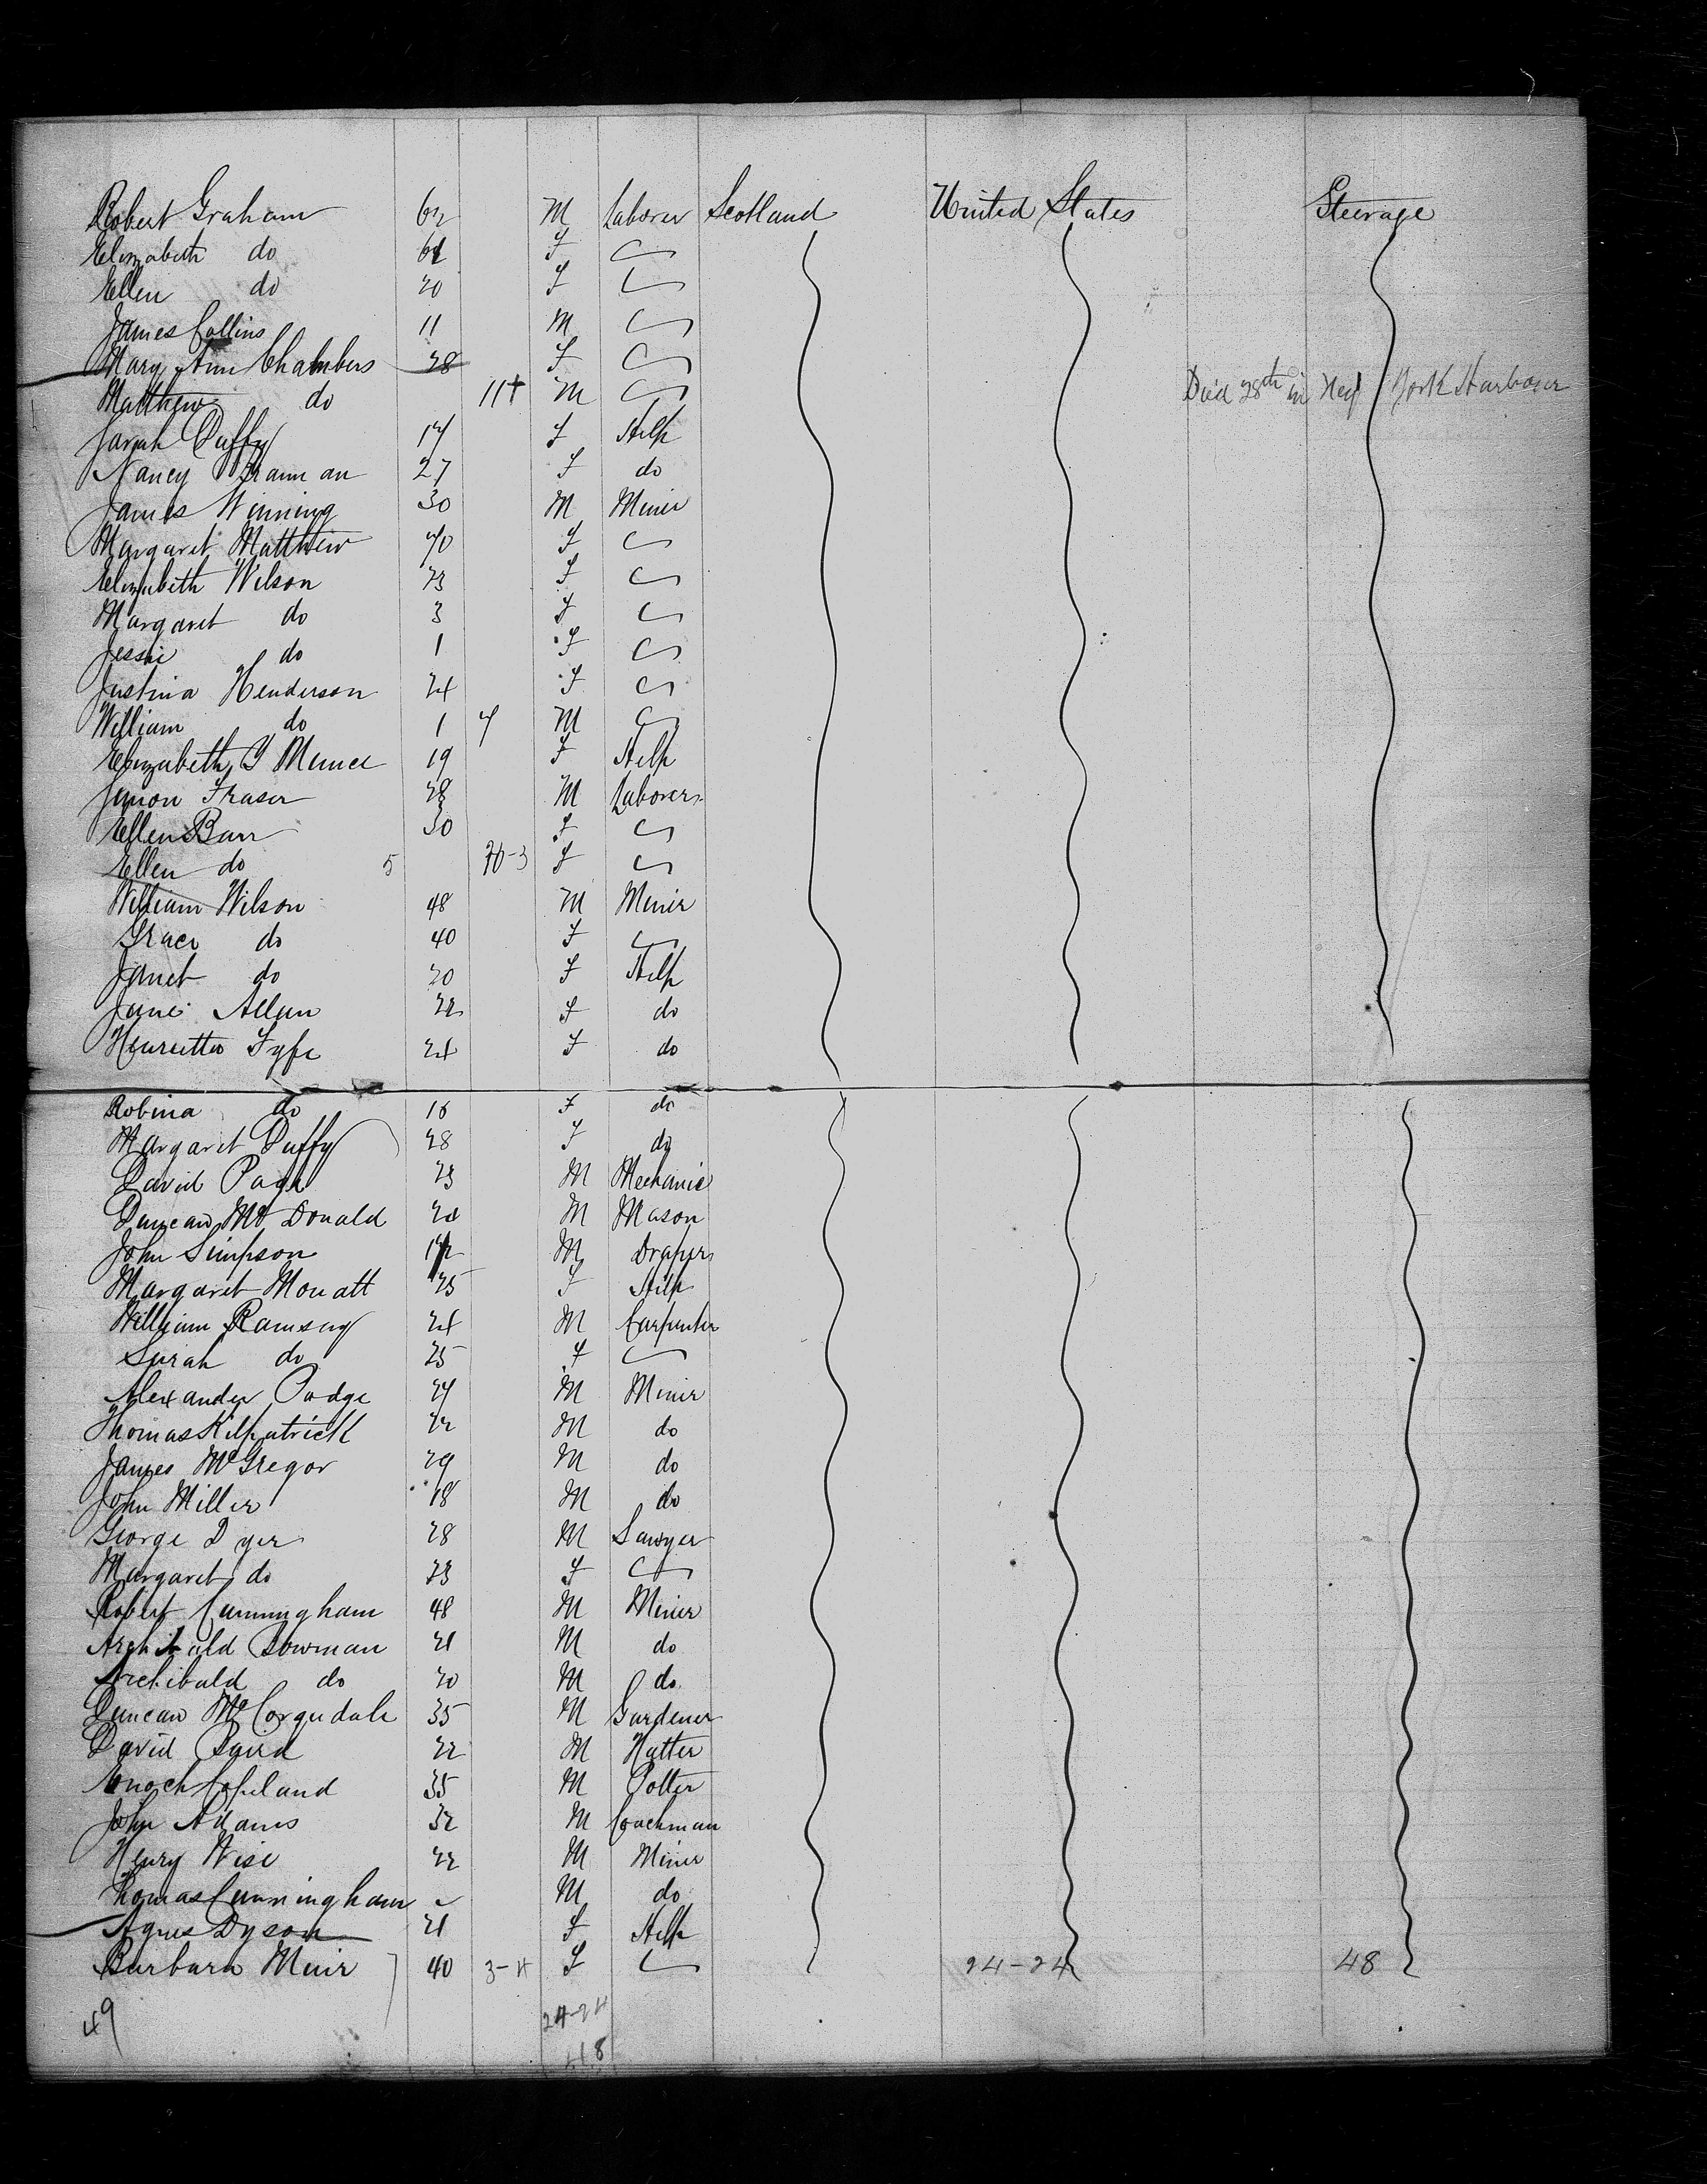 Robert Graham 62 M Laborer Scotland United States Steerage
Elizabeth do 61 F
Ellen do 20 F
James Collins 11 M
Mary Ann Chambers 28 F
Matthew do 11+ M Died 28th in New York Harbour
Sarah Duffy 17 F Help
Nancy Brannan 27 F do
James Winning 30 M Miner
Margaret Matthew 40 F
Elizabeth Wilson 23 F
Margaret do 3 F
Jessie do 1 F
Justina Henderson 24 F
William do 1 M
Elizabeth Y 19 F Help
Simon Fraser 28 M Laborer
Ellen Barr 30 F
Ellen do 5 F
William Wilson 48 M Miner
Grace do 40 F
Janet do 20 F Help
Jane Allan 22 F do
Henrietta Fyfe 24 F do
Robina do F do
Margaret Duffy 28 F do
David Page 23 M Mechanic
Duncan McDonald M Mason
John Simpson M Draper
Margaret Mouatt 25 F Help
William Ramsay 24 M Carpenter
Sarah do 25 F
Alexander 24 M Miner
Thomas Kilpatrick 22 M do
James McGregor 29 M do
John Miller 18 M do
George Dyer 28 M Sawyer
Margaret do 23 F
Robert Cunningham 48 M Miner
Archibald Bowman 21 M do
Archibald do 20 M do
Duncan McCorqudale 35 M Gardener
David Baird 22 M Hatter
Enoch Copeland 35 M Potter
John Adams 32 M Coachman
Henry Wise 22 M Miner
Thomas Cunningham M do
Agnes Dyson 21 F Help
Barbara Muir 40 F 24-24 48
49 24-24